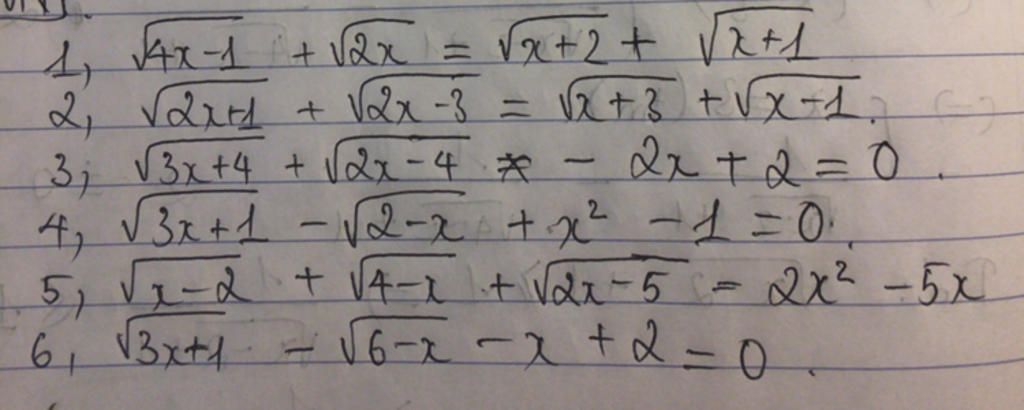 1, √4x-1 + √2x = √x+2 + √x+1
2, √2x+1 + √2x-3 = √x+3 + √x-1.
3, √3x+4 + √2x-4 - 2x + 2 = 0.
4, √3x+1 - √2-x + x² - 1 = 0.
5, √x-2 + √4-x + √2x-5 = 2x² - 5x
6, √3x+1 - √6-x - x + 2 = 0.